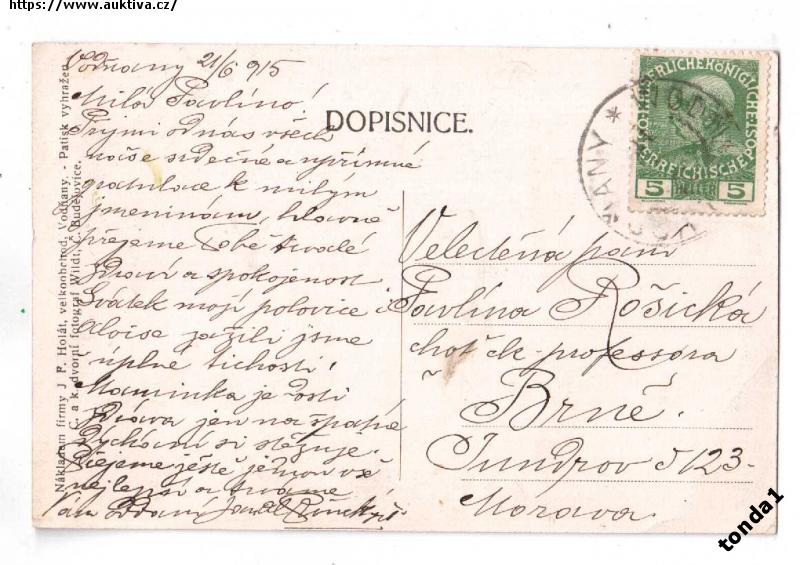 https://www.auktiva.cz/
Vodňany 21/6 915
Milá Pavlíno!
Přijmi od nás všech
naše srdečné a upřímné
gratulace k milým
jmeninám, hlavně
přejeme Tobě trvalé
zdraví a spokojenost
Svátek mojí polovice i
Aloise zažili jsme
v úplné tichosti.
Maminka je dosti
zdráva jen na špatné
dýchání si stěžuje.
Přejeme ještě jednou vše
nejlepší a trváme
Vám oddaný
DOPISNICE.
Nákladem firmy J. P. Holát, velkoobchod, Vodňany. - Patisk vyhražen
C. a k. dvorní fotograf Wildt, Č. Budějovice.
KAISERLICHE KÖNIGLICHE ÖSTERREICHISCHE POST
5 HELLER 5
VODŇANY
Velectěná paní
Pavlína Rošická
choť c. k. professora
Brně.
Jundrov č 123
Morava.
tonda1